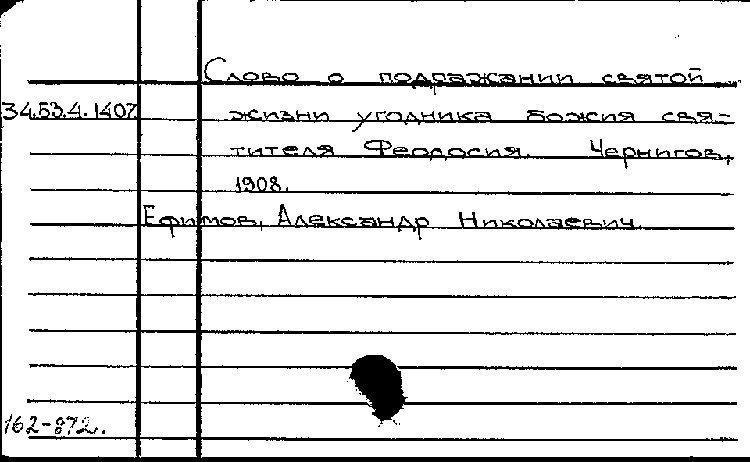 Слово о подражании святой
34.53.4.1407 жизни угодника божия свя-
тителя Феодосия. Чернигов,
1908.
Ефимов, Александр Николаевич.
162-872.